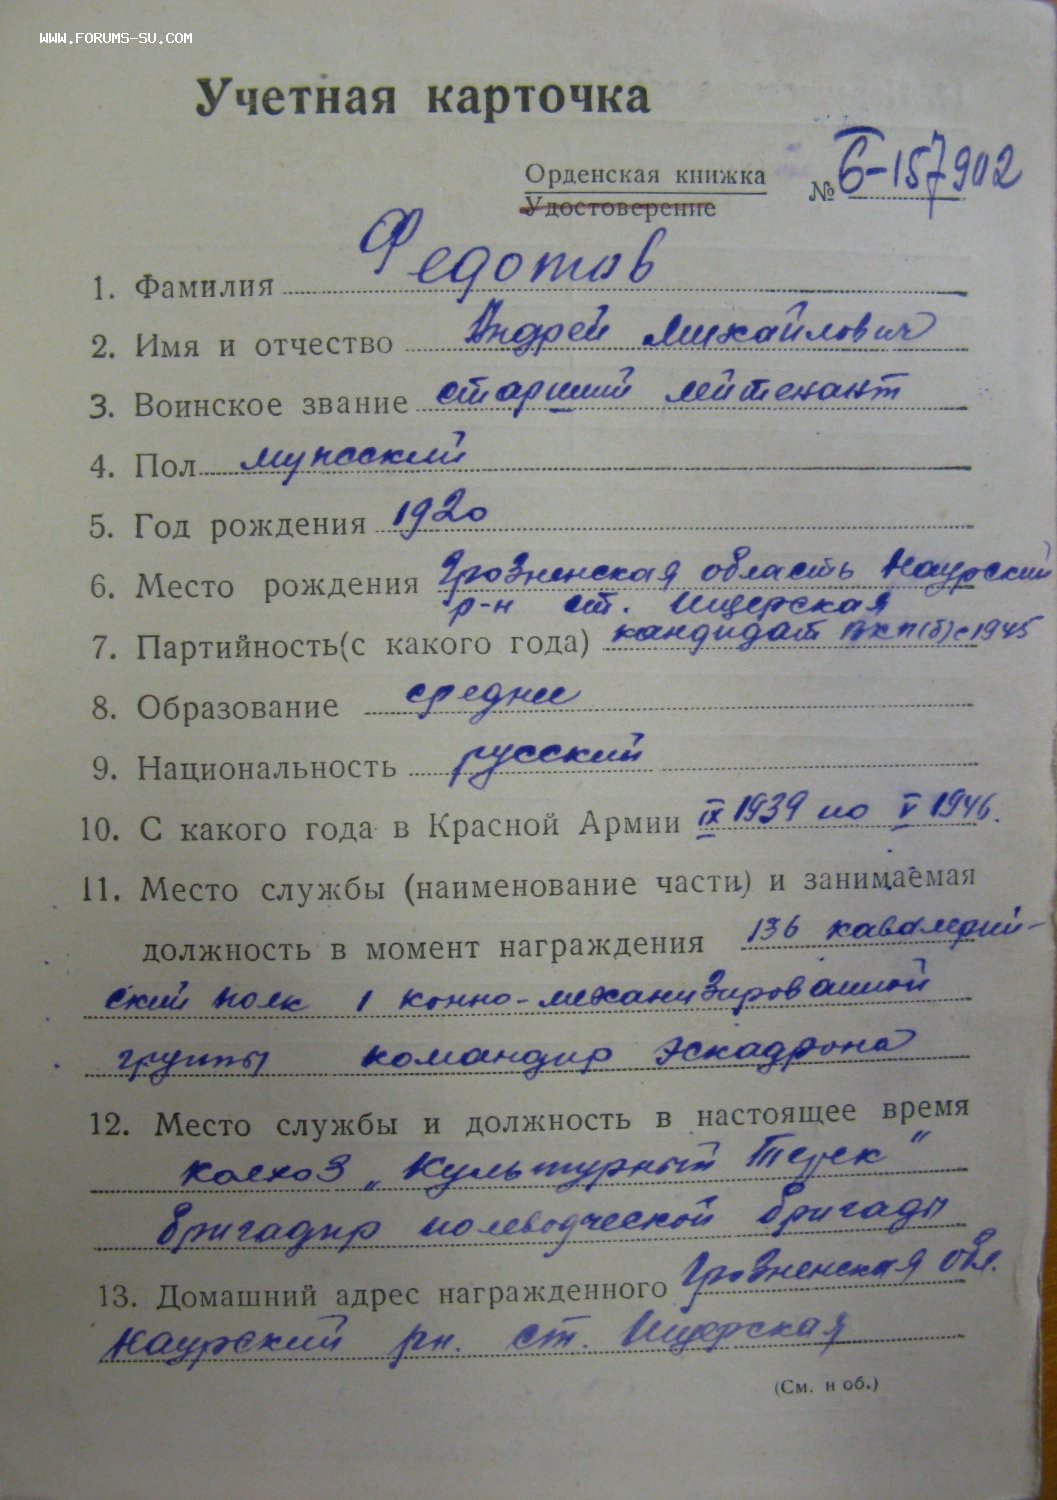 WWW.FORUMS-SU.COM
Учетная карточка
Орденская книжка
Удостоверение
№ Б-157902
1. Фамилия Федотов
2. Имя и отчество Андрей Михайлович
3. Воинское звание старший лейтенант
4. Пол мужской
5. Год рождения 1920
6. Место рождения Грозненская область Наурский
р-н ст. Ищерская
7. Партийность (с какого года) кандидат ВКП(б) с 1945
8. Образование средне
9. Национальность русский
10. С какого года в Красной Армии IX 1939 по V 1946.
11. Место службы (наименование части) и занимаемая
должность в момент награждения 136 кавалерий-
ский полк 1 конно-механизированной
группы командир эскадрона
12. Место службы и должность в настоящее время
колхоз „Культурный Терек"
бригадир полеводческой бригады
13. Домашний адрес награжденного Грозненская обл.
Наурский рн. ст. Ищерская
(См. н об.)